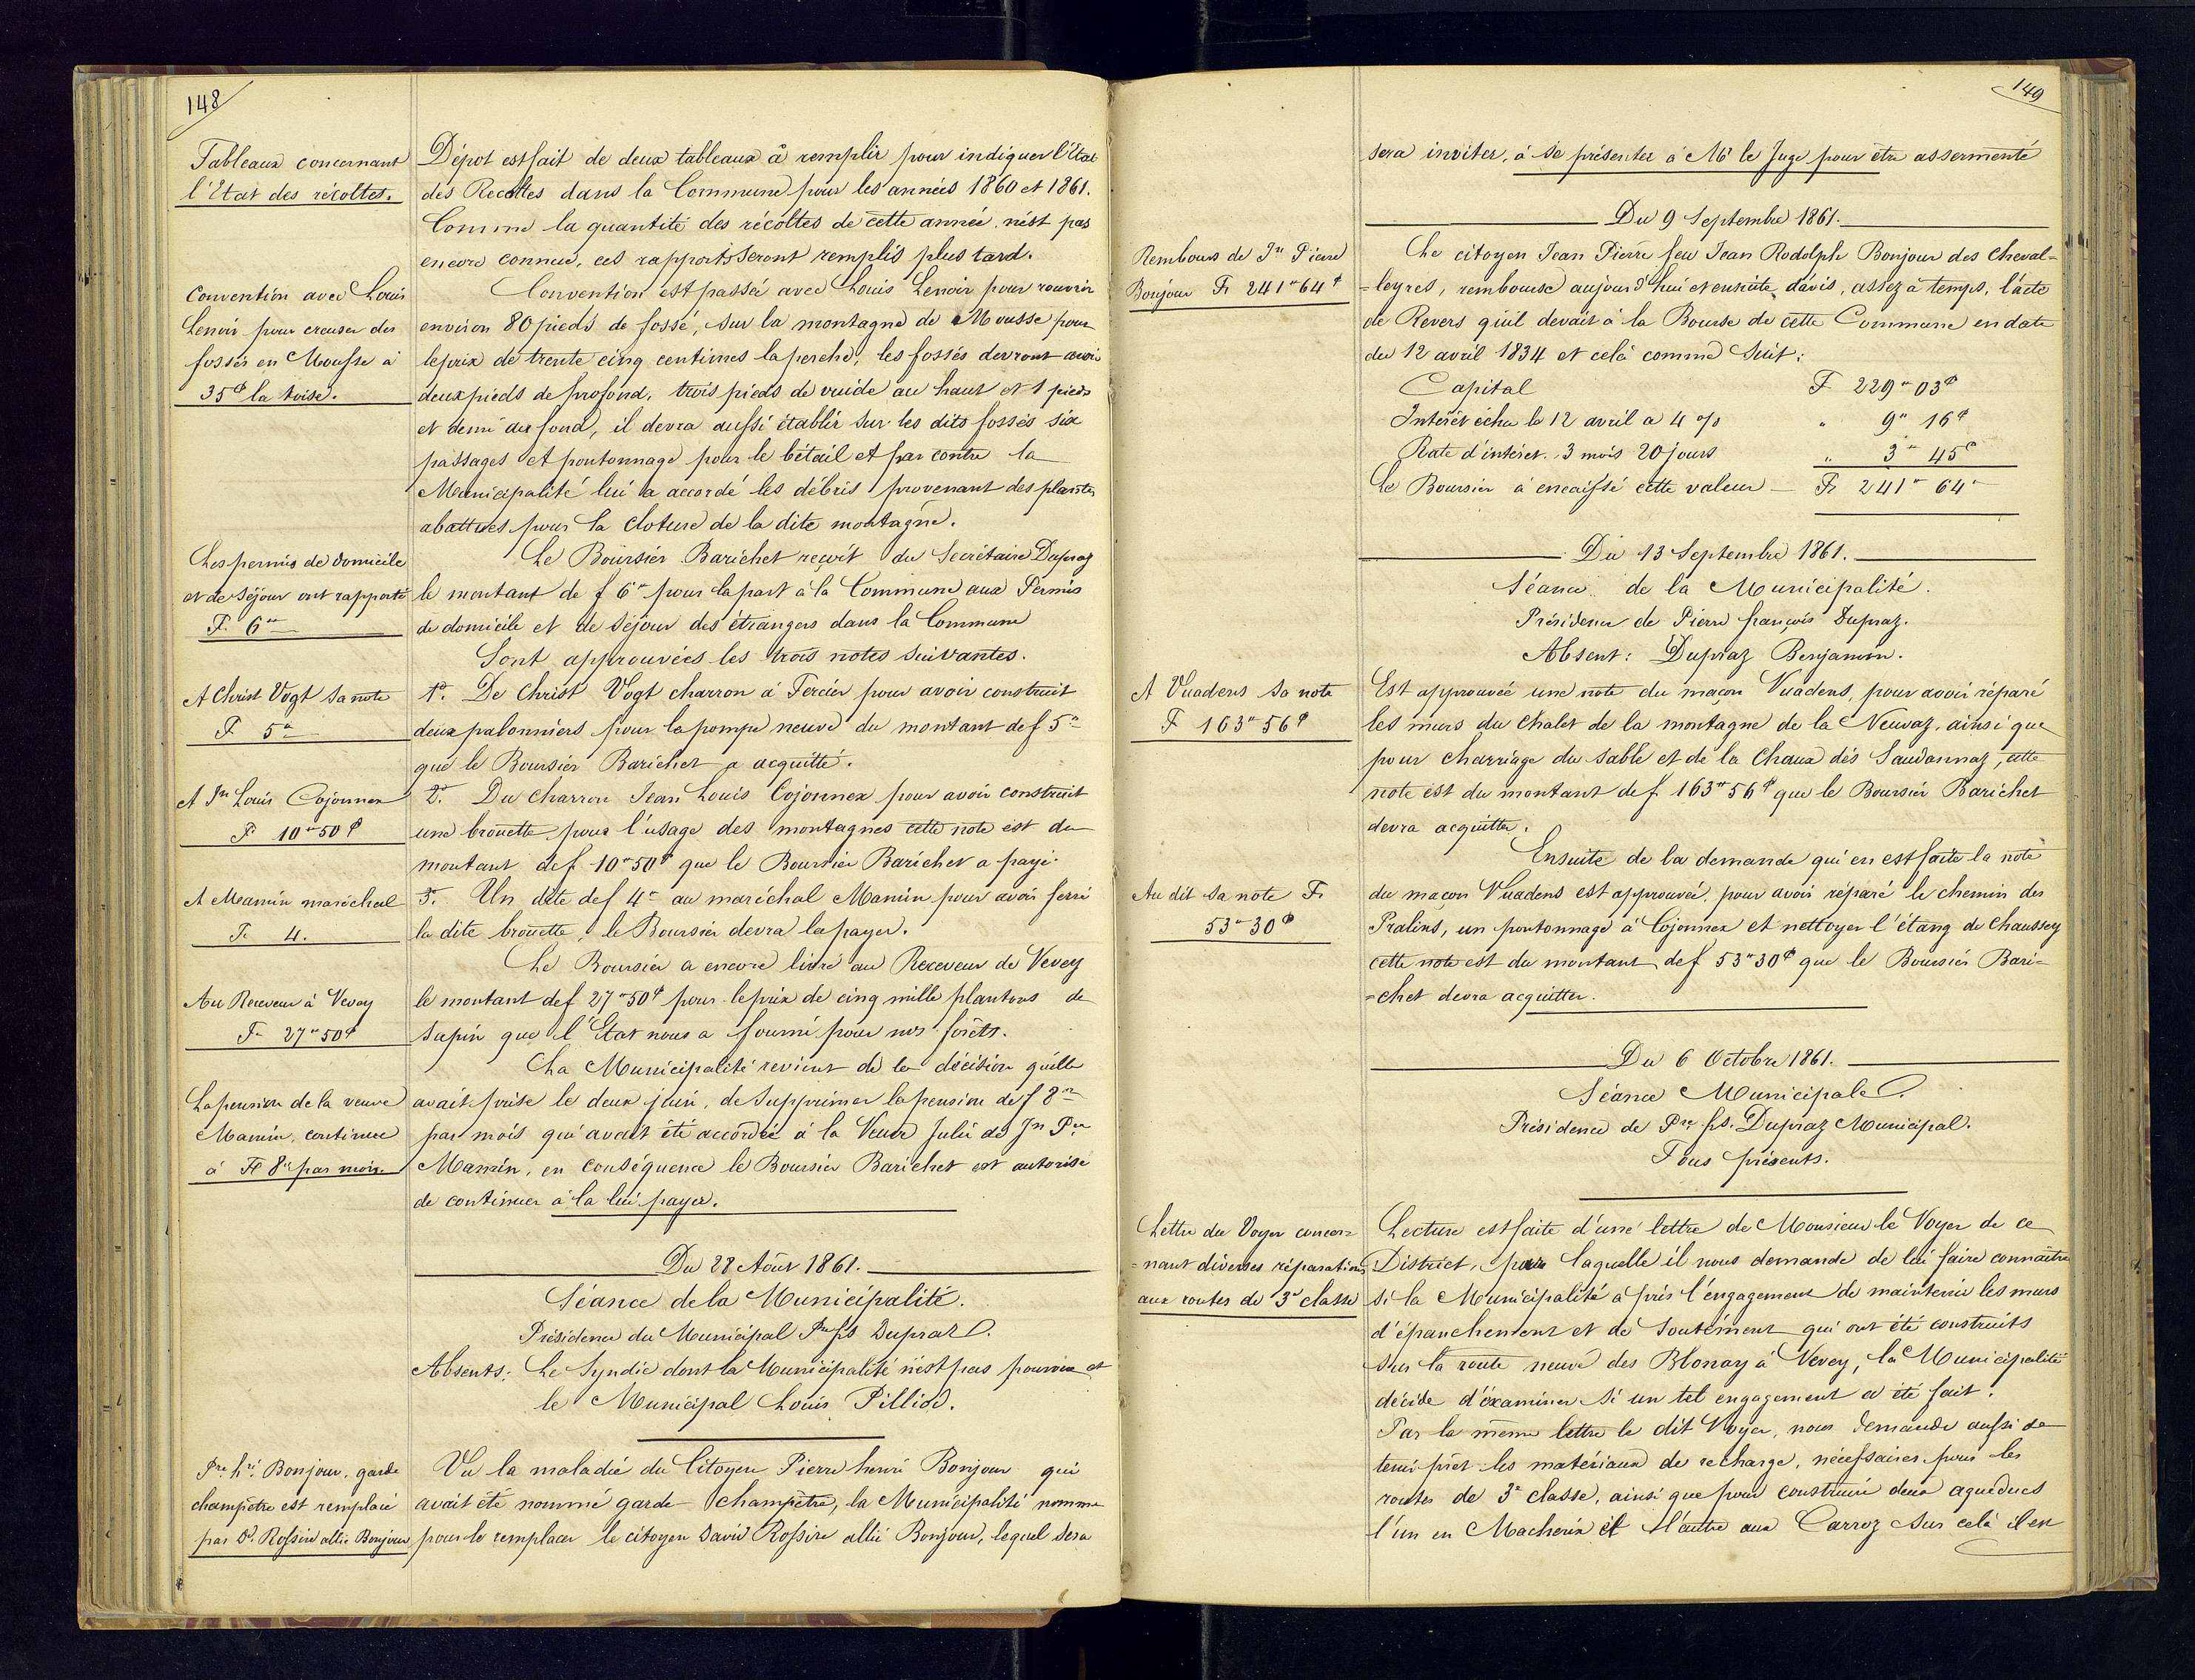 148
Tableaux concernant
l'Etat des récoltes.
Dépot est fait de deux tableaux à remplir pour indiquer l'État
des Recoltes dans la Commune pour les années 1860 et 1861.
Comme la quantité des récoltes de cette année, n'est pas
encore connue, ces rapports seront remplis plus tard.
Convention avec Louis
Lenoir pour creuser des
fossés en Mousse à
35 ¢ la toise.
Convention est passée avec Louis Lenoir pour rouvrir
environ 80 pieds de fossé, sur la montagne de Mousse pour
le prix de trente cinq centimes la perche, les fossés devront avoir
deux pieds de profond, trois pieds de vuide au haut et 1 pieds
et demi au fond, il devra aussi établir sur les dits fossés six
passages et pontonnage pour le bétail et par contre la
Municipalité lui a accordé les débris provenant des plantes
abattues pour la cloture de la dite montagne.
Les permis de domicile
et de séjour ont rapporté
F. 6"
Le Boursier Barichet reçoit du Secrétaire Dupraz
le montant de f 6" pour la part à la Commune aux Permis
de domicile et de séjour des étrangers dans la Commune
Sont approuvées les trois notes suivantes.
A Christ Vogt sa note
F 5"
1º. De Christ Vogt charron à Fercier pour avoir construit
deux palonniers pour la pompe neuve du montant de f 5"
que le Boursier Barichet a acquitté.
A Jn Louis Cojonnex
F 10" 50 ¢
2º. Du charron Jean Louis Cojonnex pour avoir construit
une brouette pour l'usage des montagnes cette note est du
montant de f 10" 50 ¢ que le Boursier Barichet a payé.
A Mamin maréchal
F. 4.
3º. Un dite de f 4" au maréchal Mamin pour avoir ferré
la dite brouette, le Boursier devra la payer.
Au Receveur à Vevey
F 27" 50 ¢
Le Boursier a encore livré au Receveur de Vevey
le montant de f 27" 50 ¢ pour le prix de cinq mille plantons de
sapin que l'Etat nous a fourni pour nos forêts.
La pension de la veuve
Mamin, continuée
à F 8" par mois
La Municipalité revient de la décision qu'elle
avait prise le deux juin, de supprimer la pension de f 8"
par mois qui avait été accordée à la Veuve Julie de Jn Pre
Mamin, en conséquence le Boursier Barichet est autorisé
de continuer à la lui payer.
Du 28 Août 1861.
Séance de la Municipalité.
Présidence du Municipal Pre fs Dupraz.
Absents: Le Syndic dont la Municipalité n'est pas pourvue et
le Municipal Louis Pilliod.
Pre hri Bonjour, garde
champêtre est remplacé
par Dd Rossire allié Bonjour
Vu la maladie du Citoyen Pierre henri Bonjour qui
avait été nommé garde champêtre, la Municipalité nomme
pour le remplacer le citoyen David Rossire allié Bonjour, lequel sera
149
sera inviter, à se présenter à Mr le Juge pour être assermenté
Du 9 Septembre 1861.
Rembours de Jn Pierre
Bonjour Fr 241" 64 ¢
Le citoyen Jean Pierre feu Jean Rodolph Bonjour des Cheval=
=leyres, rembourse aujourd'hui et ensuite d'avis, assez à temps, l'acte
de Revers qu'il devait à la Bourse de cette Commune en date
du 12 avril 1834 et celà comme suit:
Capital F 229" 03 ¢
Intérêt échu le 12 avril a 4 % " 9" 16 ¢
Rate d'intéret. 3 mois 20 jours " 3" 45 c
Le Boursier à encaissé cette valeur — Fr 241" 64"
Du 13 Septembre 1861.
Séance de la Municipalité.
Présidence de Pierre françois Dupraz.
Absent: Dupraz Benjamin.
A Vuadens sa note
F 163" 56 ¢
Est approuvée une note du maçon Vuadens, pour avoir réparé
les murs du chalet de la montagne de la Neuvaz, ainsi que
pour charriage du sable et de la Chaux dés Saudannaz, cette
note est du montant de f 163" 56 ¢ que le Boursier Barichet
devra acquitter.
Au dit sa note Fr
53" 30 ¢
Ensuite de la demande qui en est faite la note
du maçon Vuadens est approuvée, pour avoir réparé le chemin des
Pralins, un pontonnage à Cojonnex et nettoyer l'étang de Chaussey
cette note est du montant de f 53" 30 ¢ que le Boursier Bari=
=chet devra acquitter.
Du 6 Octobre 1861.
Séance Municipale.
Présidence de Pre fs. Dupraz Municipal.
Tous présents.
Lettre du Voyer concer=
=nant diverses réparations
aux routes de 3e classe
Lecture est faite d'une lettre de Monsieur le Voyer de ce
District, par laquelle il nous demande de lui faire connaître
si la Municipalité a pris l'engagement de maintenir les murs
d'épanchement et de soutément qui ont été construits
sur la route neuve des Blonay à Vevey, la Municipalité
décide d'éxaminer si un tel engagement a été fait.
Par la même lettre le dit Voyer, nous demande aussi de
tenir prêt les matériaux de recharge, nécessaires pour les
routes de 3e classe, ainsi que pour construire deux aqueducs
l'un en Macherix et l'autre aux Carroz sur celà il en